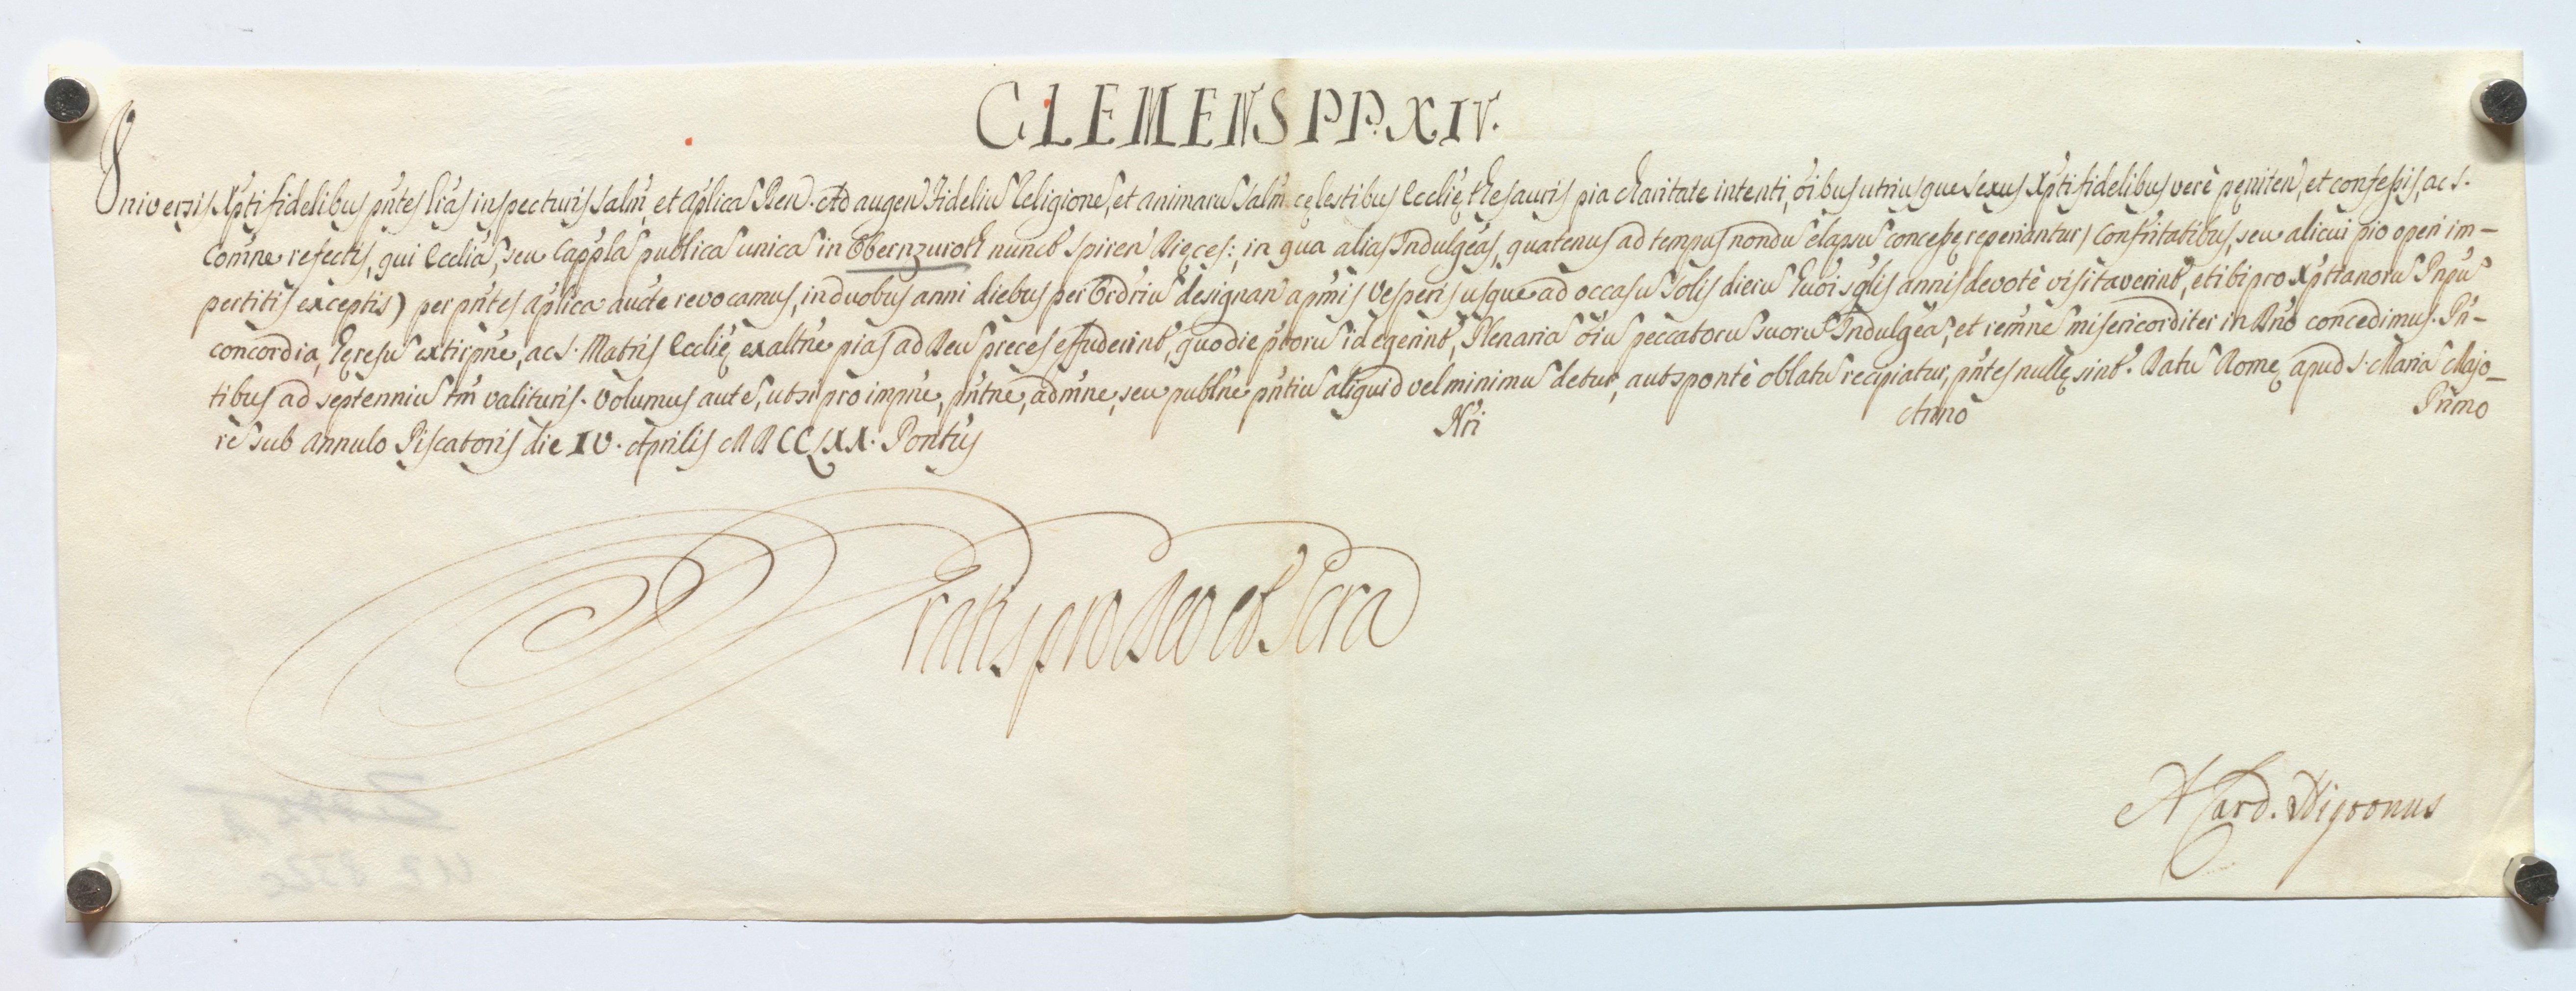 CLEMENS PP. XIV.
Universis Xpti fidelibus pntes lras inspecturis salm, et aplica Ben. Ad augen fideliu Religione, et animaru salm celestibus Ecclie thesauris pia charitate intenti, oibus utriusque sexus Xpti fidelibus verè peniten, et confessis, ac s.
Comne refectis, qui Ecclia, seu Cappla publica unica in Oberuzuroth nuncb spiren Dieces:, in qua alias Indulgeas, quatenus ad tempus nondu elapsu concesse reperiantur (Confritatibus, seu alicui pio operi im-
pertitis exceptis) per pntes aplica aucte revocamus, in duobus anni diebus per Ordriu designan a pmis Vesperis usque ad occasu Solis dieru huoi sglis annis devotè visitaverint, et ibi pro Xptianoru Pnpu
concordia, heresu extirpne, ac s. Matris Ecclie exaltne pias ad Deu preces effuderint, quo die pboru id egerint, Plenaria oiu peccatoru suoru Indulgea, et remne misericorditer in Dno concedimus. Pn-
tibus ad septenniu tm valituris. Volumus aute, ut si pro impne, pntne, admne, seu publne pntiu aliquid vel minimu detur, aut sponte oblatu recipiatur, pntes nulle sint. Datu Rome apud S. Maria Majo-
re sub Annulo Piscatoris die IV. Aprilis MDCCLXX. Pontus Nri Anno Primo
Gratis pro Deo et Scra
A Card. Nigronus